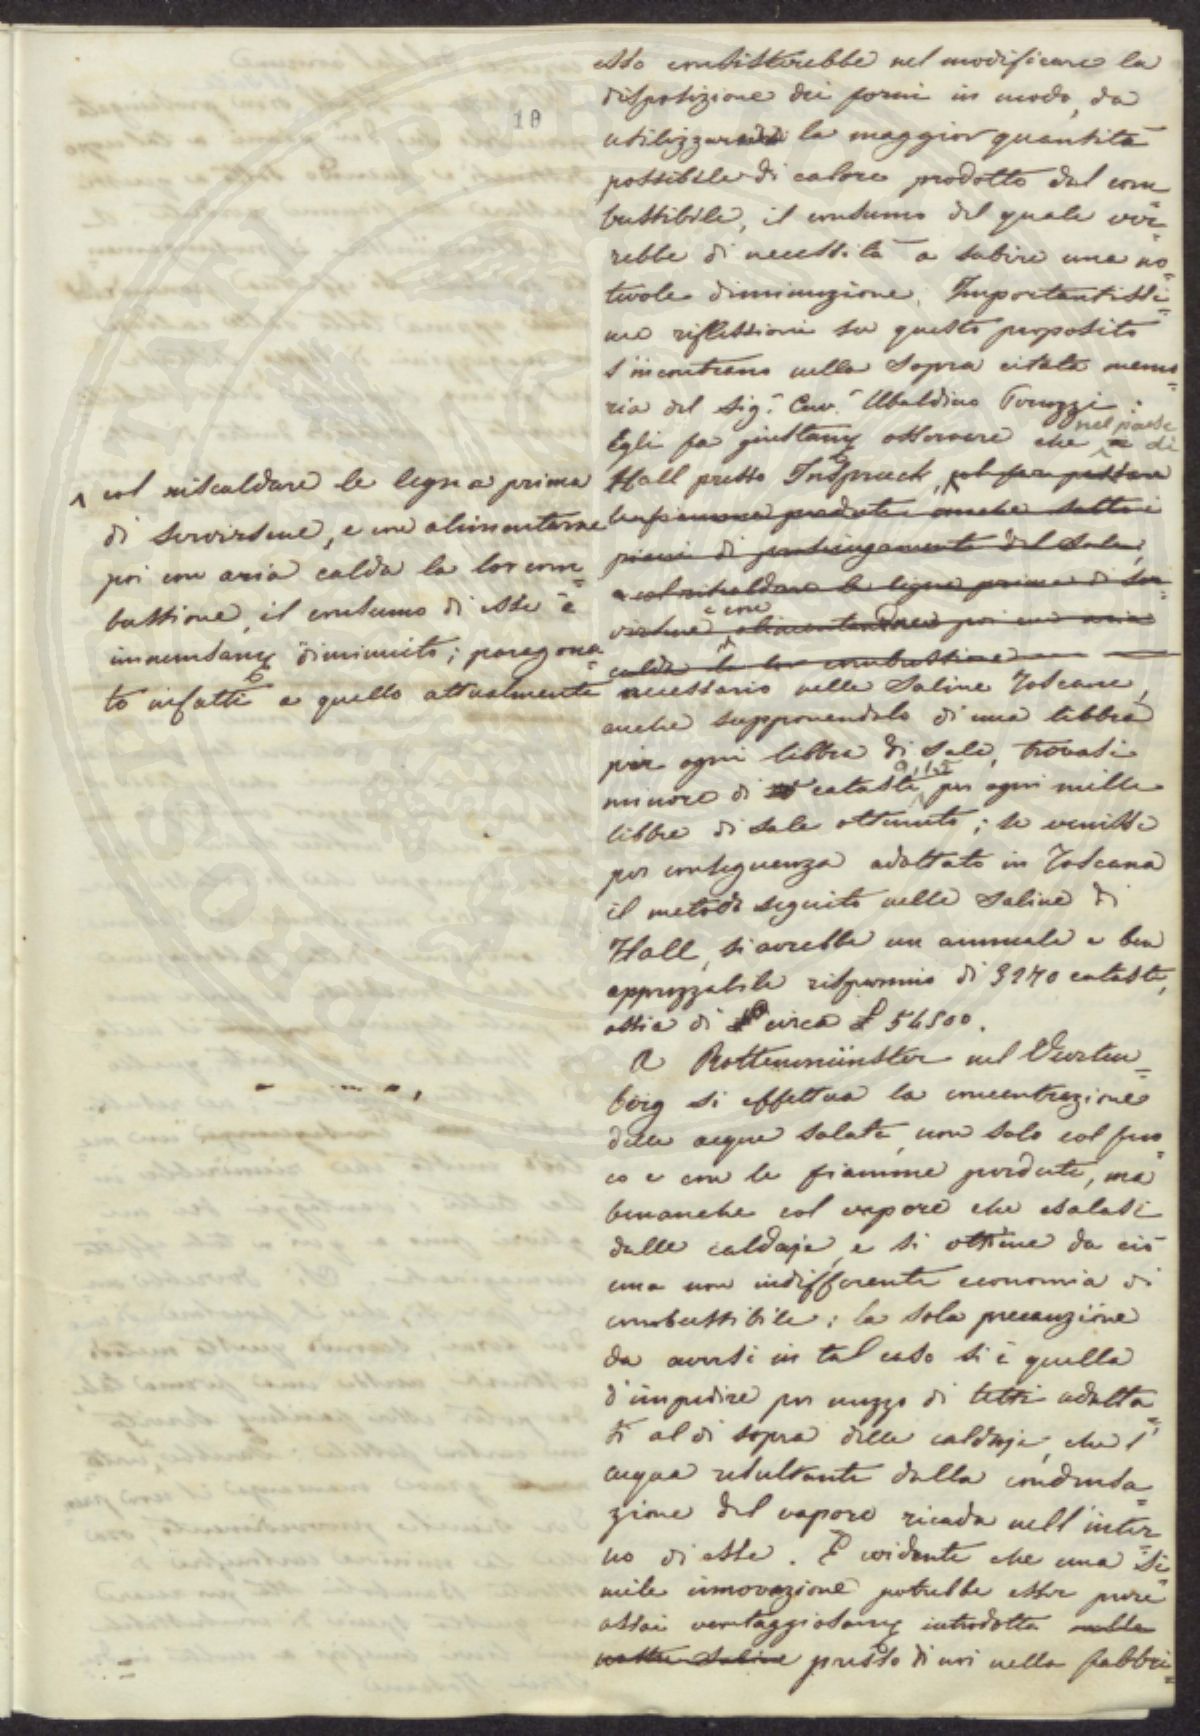 10
esso consisterebbe nel modificare la
disposizione dei forni in modo, da
utilizzare la maggior quantità
possibile di calore prodotto dal com-
bustibile, il consumo del quale ver-
rebbe di necessità a subire una no-
tevole diminuzione. Importantissi-
me riflessioni su questo proposito
s'incontrano nella sopra citata memo-
ria del Sig.r Cav.r Ubaldino Peruzzi.
Egli fa giustam. osservare che nel paese di
Hall presso Inspruck, col far passare
le fiamme perdute anche sotto i
piani di prosciugamento del sale,
e col riscaldare le legna prima di ser-
virsene e con alimentarne poi con aria
calda la lor combustione
^ col riscaldare le legna prima
di servirsene, e con alimentarne
poi con aria calda la lor com-
bustione, il consumo di esse è
immensam. diminuito; paragona-
to infatti a quello attualmente
necessario nelle Saline Toscane,
anche supponendolo di una libbra
per ogni libbra di sale, trovasi
minore di cataste per ogni mille
libbre di sale ottenuto; se venisse
per conseguenza adottato in Toscana
il metodo seguito nelle Saline di
Hall, si avrebbe un annuale e ben
apprezzabile risparmio di 3270 cataste,
ossia di circa £ 54500.
A Rottenmünster nel Vurtem-
berg si effettua la concentrazione
delle acque salate, non solo col fuo-
co e con le fiamme perdute, ma
benanche col vapore che esalasi
dalle caldaje, e si ottiene da ciò
una non indifferente economia di
combustibile; la sola precauzione
da aversi in tal caso si è quella
d'impedire per mezzo di tetti adatta-
ti al di sopra delle caldaje, che l'
acqua resultante dalla condensa-
zione del vapore ricada nell'inter-
no di esse. È evidente che una si-
mile innovazione potrebbe esser pure
assai vantaggiosam. introdotta nelle
nostre Saline presso di noi nella fabbri-